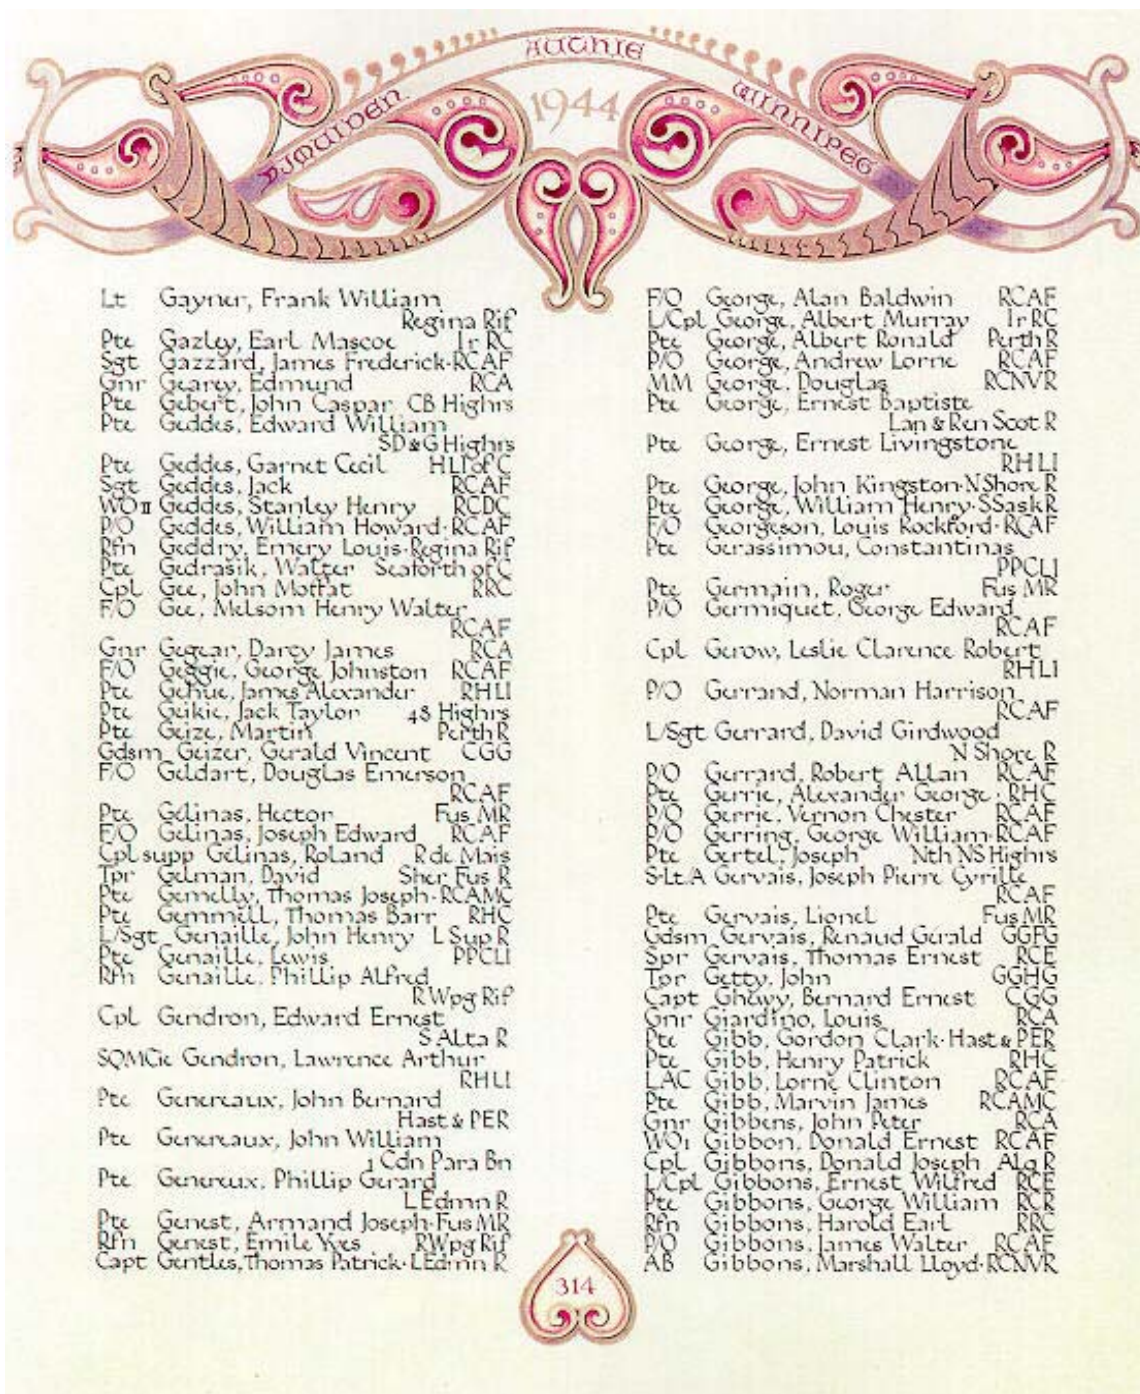 YJMUIDEN
AUTHIE
WINNIPEG
1944
Lt Gayner, Frank William
Regina Rif
Pte Gazley, Earl Mascoe Ir RC
Sgt Gazzard, James Frederick·RCAF
Gnr Gearey, Edmund RCA
Pte Gebert, John Caspar CB Highrs
Pte Geddes, Edward William
SD&G Highrs
Pte Geddes, Garnet Cecil HLI of C
Sgt Geddes, Jack RCAF
WO II Geddes, Stanley Henry RCDC
P/O Geddes, William Howard·RCAF
Rfn Geddry, Emery Louis·Regina Rif
Pte Gedrasik, Walter Seaforth of C
Cpl Gee, John Moffat RRC
F/O Gee, Melsom Henry Walter
RCAF
Gnr Gegear, Darcy James RCA
F/O Geggie, George Johnston RCAF
Pte Gehue, James Alexander RHLI
Pte Geikie, Jack Taylor 48 Highrs
Pte Geize, Martin Perth R
Gdsm Geizer, Gerald Vincent CGG
F/O Geldart, Douglas Emerson
RCAF
Pte Gelinas, Hector Fus MR
F/O Gelinas, Joseph Edward RCAF
Cpl supp Gelinas, Roland R de Mais
Tpr Gelman, David Sher Fus R
Pte Gemelly, Thomas Joseph·RCAMC
Pte Gemmell, Thomas Barr RHC
L/Sgt Genaille, John Henry L Sup R
Pte Genaille, Lewis PPCLI
Rfn Genaille, Phillip Alfred
R Wpg Rif
Cpl Gendron, Edward Ernest
S Alta R
SQMCie Gendron, Lawrence Arthur
RHLI
Pte Genereaux, John Bernard
Hast & PER
Pte Genereaux, John William
1 Cdn Para Bn
Pte Genereux, Phillip Gerard
L Edmn R
Pte Genest, Armand Joseph·Fus MR
Rfn Genest, Emile Yves R Wpg Rif
Capt Gentles, Thomas Patrick·L Edmn R
F/O George, Alan Baldwin RCAF
L/Cpl George, Albert Murray Ir RC
Pte George, Albert Ronald Perth R
P/O George, Andrew Lorne RCAF
MM George, Douglas RCNVR
Pte George, Ernest Baptiste
Lan & Ren Scot R
Pte George, Ernest Livingstone
RHLI
Pte George, John Kingston·N Shore R
Pte George, William Henry·S Sask R
F/O Georgeson, Louis Rockford·RCAF
Pte Gerassimou, Constantinas
PPCLI
Pte Germain, Roger Fus MR
P/O Germiquet, George Edward
RCAF
Cpl Gerow, Leslie Clarence Robert
RHLI
P/O Gerrand, Norman Harrison
RCAF
L/Sgt Gerrard, David Girdwood
N Shore R
P/O Gerrard, Robert Allan RCAF
Pte Gerrie, Alexander George·RHC
P/O Gerrie, Vernon Chester RCAF
P/O Gerring, George William·RCAF
Pte Gertel, Joseph Nth NS Highrs
S-Lt.A Gervais, Joseph Pierre Cyrille
RCAF
Pte Gervais, Lionel Fus MR
Gdsm Gervais, Renaud Gerald GGFG
Spr Gervais, Thomas Ernest RCE
Tpr Getty, John GGHG
Capt Ghewy, Bernard Ernest CGG
Gnr Giardino, Louis RCA
Pte Gibb, Gordon Clark·Hast & PER
Pte Gibb, Henry Patrick RHC
LAC Gibb, Lorne Clinton RCAF
Pte Gibb, Marvin James RCAMC
Gnr Gibbens, John Peter RCA
WO1 Gibbon, Donald Ernest RCAF
Cpl Gibbons, Donald Joseph Alq R
L/Cpl Gibbons, Ernest Wilfred RCE
Pte Gibbons, George William RCR
Rfn Gibbons, Harold Earl RRC
P/O Gibbons, James Walter RCAF
AB Gibbons, Marshall Lloyd·RCNVR
314